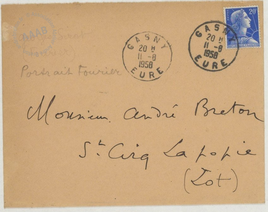 Portrait Fourier
GASNY
20 H
11-8
1958
EURE
GASNY
20 H
11-8
1958
EURE
20
Monsieur André Breton
St Cirq La popie
(Lot)